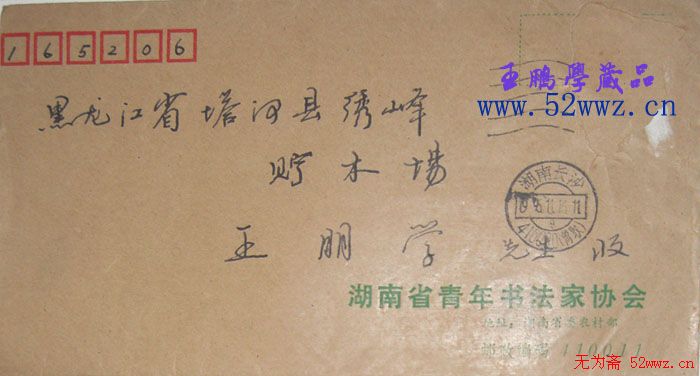 165206
王鵬學藏品
www.52wwz.cn
黑龙江省塔河县绣峰
贮木场
湖南长沙
王朋学 先生 收
湖南省青年书法家协会
地址：湖南省委农村部
邮政编码 410011
无为斋 52wwz.cn